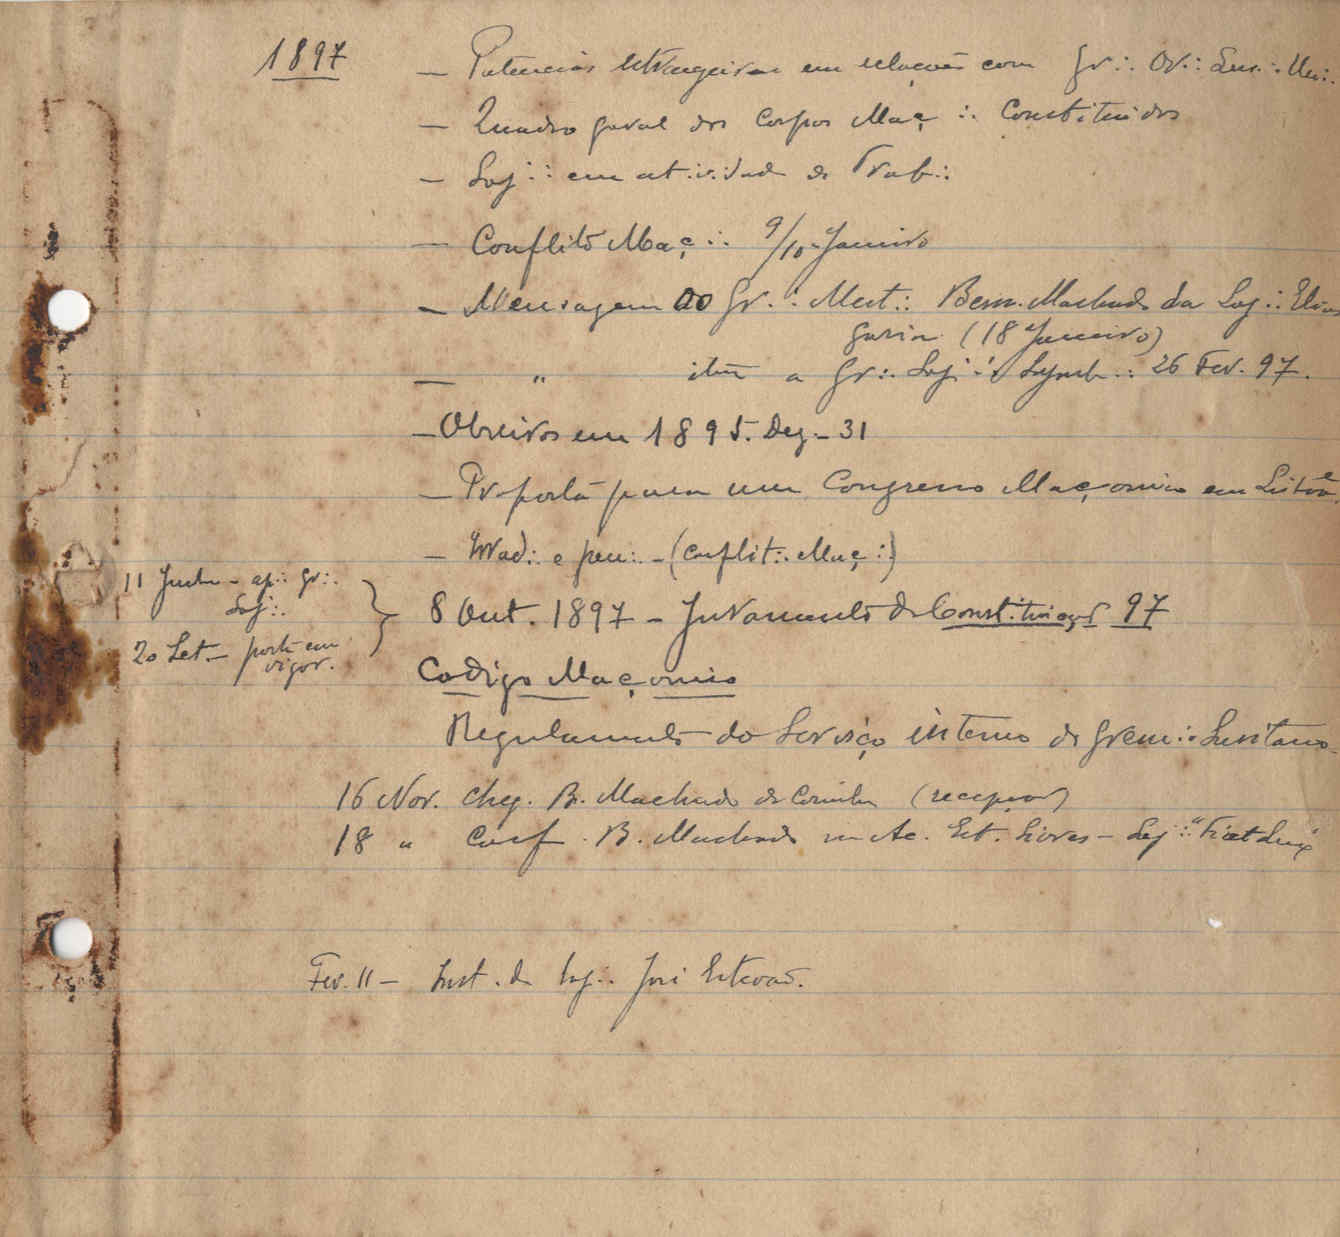 1897 — Potencias Estrangeiras em relações com Gr∴ Or∴ Lus∴ Un∴
— Quadro geral dos Corpos Maç∴ Constituidos
— Loj∴ em atividade de Trab∴
— Conflito Maç∴ 9/10-Janeiro
— Mensagem ao Gr∴ Mest∴ Bern. Machado da Loj∴ Elias
Garcia (18 Janeiro)
— " item a Gr∴ Loj∴ Symb∴ 26 Fev. 97.
— Obreiros em 1895. Dez.-31
— Proposta para um Congresso Maçonico em Lisboa
— Irrad∴ e pen∴ - (Conflit∴ Maç∴)
11 Junho - ap∴ Gr∴
Loj∴
8 Out. 1897 - Juramento da Constituição 97
20 Set. - posta em
vigor.
Codigo Maçonico
Regulamento do Serviço interno do Grem∴ Lusitano
16 Nov. Cheg. B. Machado de Coimbra (recepção)
18 " Conf. B. Machado na Ac. Est. Livres - Loj∴ "Fiat Lux"
Fev. 11 - Inst. da Loj∴ José Estevão.